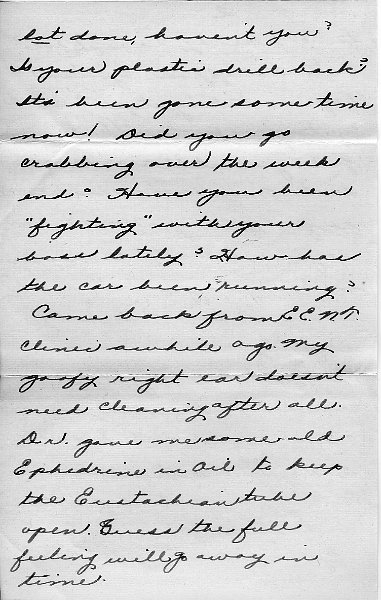 lot done, haven't you?
Is your plastic drill back?
It's been gone some time
now! Did you go
crabbing over the week
end? Have you been
"fighting" with your
boss lately? How has
the car been running?
Came back from E.E.N.T.
clinic awhile ago. My
goofy right ear doesn't
need cleaning after all.
Dr. gave me some old
Ephedrine in Oil to keep
the Eustachian tube
open. Guess the full
feeling will go away in
time.